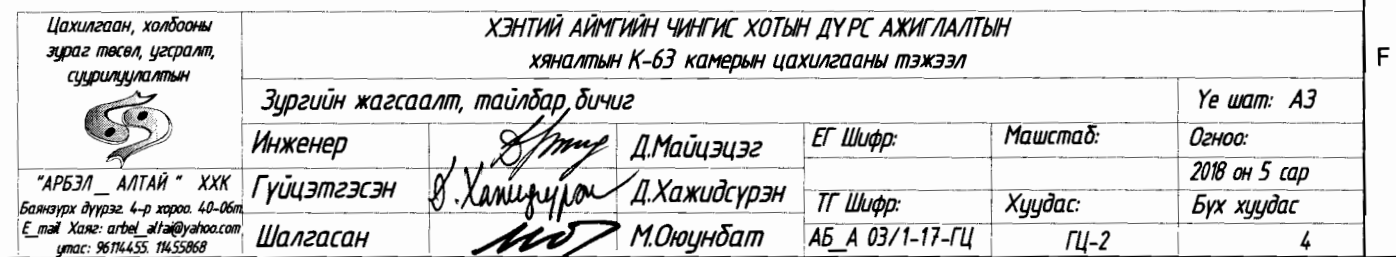 Цахилгаан, холбооны
зураг төсөл, угсралт,
суурилуулалтын
"АРБЭЛ__АЛТАЙ" ХХК
Баянзүрх дүүрэг. 4-р хороо. 40-06т
E_mail Хаяг: arbel_altai@yahoo.com
утас: 96114455. 11455868
ХЭНТИЙ АЙМГИЙН ЧИНГИС ХОТЫН ДҮРС АЖИГЛАЛТЫН
хяналтын К-63 камерын цахилгааны тэжээл
Зургийн жагсаалт, тайлбар бичиг
Үе шат: АЗ
Инженер
Д.Майцэцэг
ЕГ Шифр:
Машстаб:
Огноо:
2018 он 5 сар
Гүйцэтгэсэн
Д.Хажидсүрэн
ТГ Шифр:
Хуудас:
Бүх хуудас
Шалгасан
М.Оюунбат
АБ_А 03/1-17-ГЦ
ГЦ-2
4
F